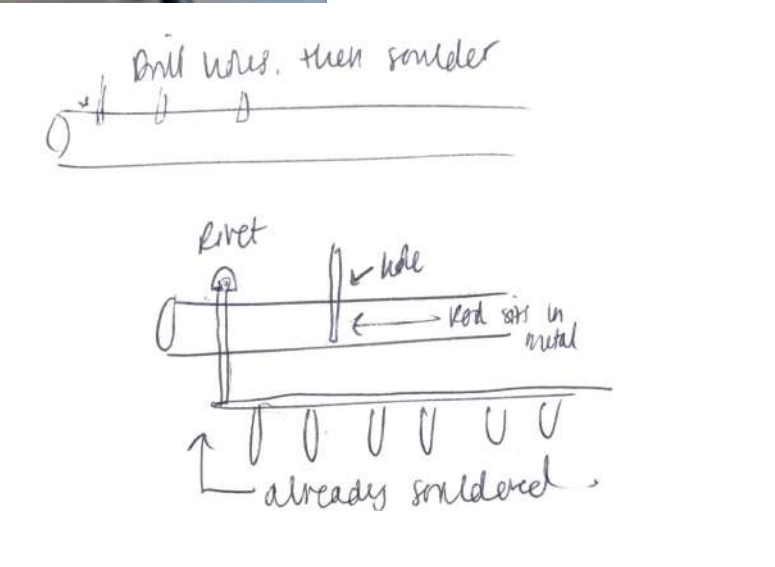 Drill holes. then soulder
Rivet
hole
Rod sits in
metal
already souldered.